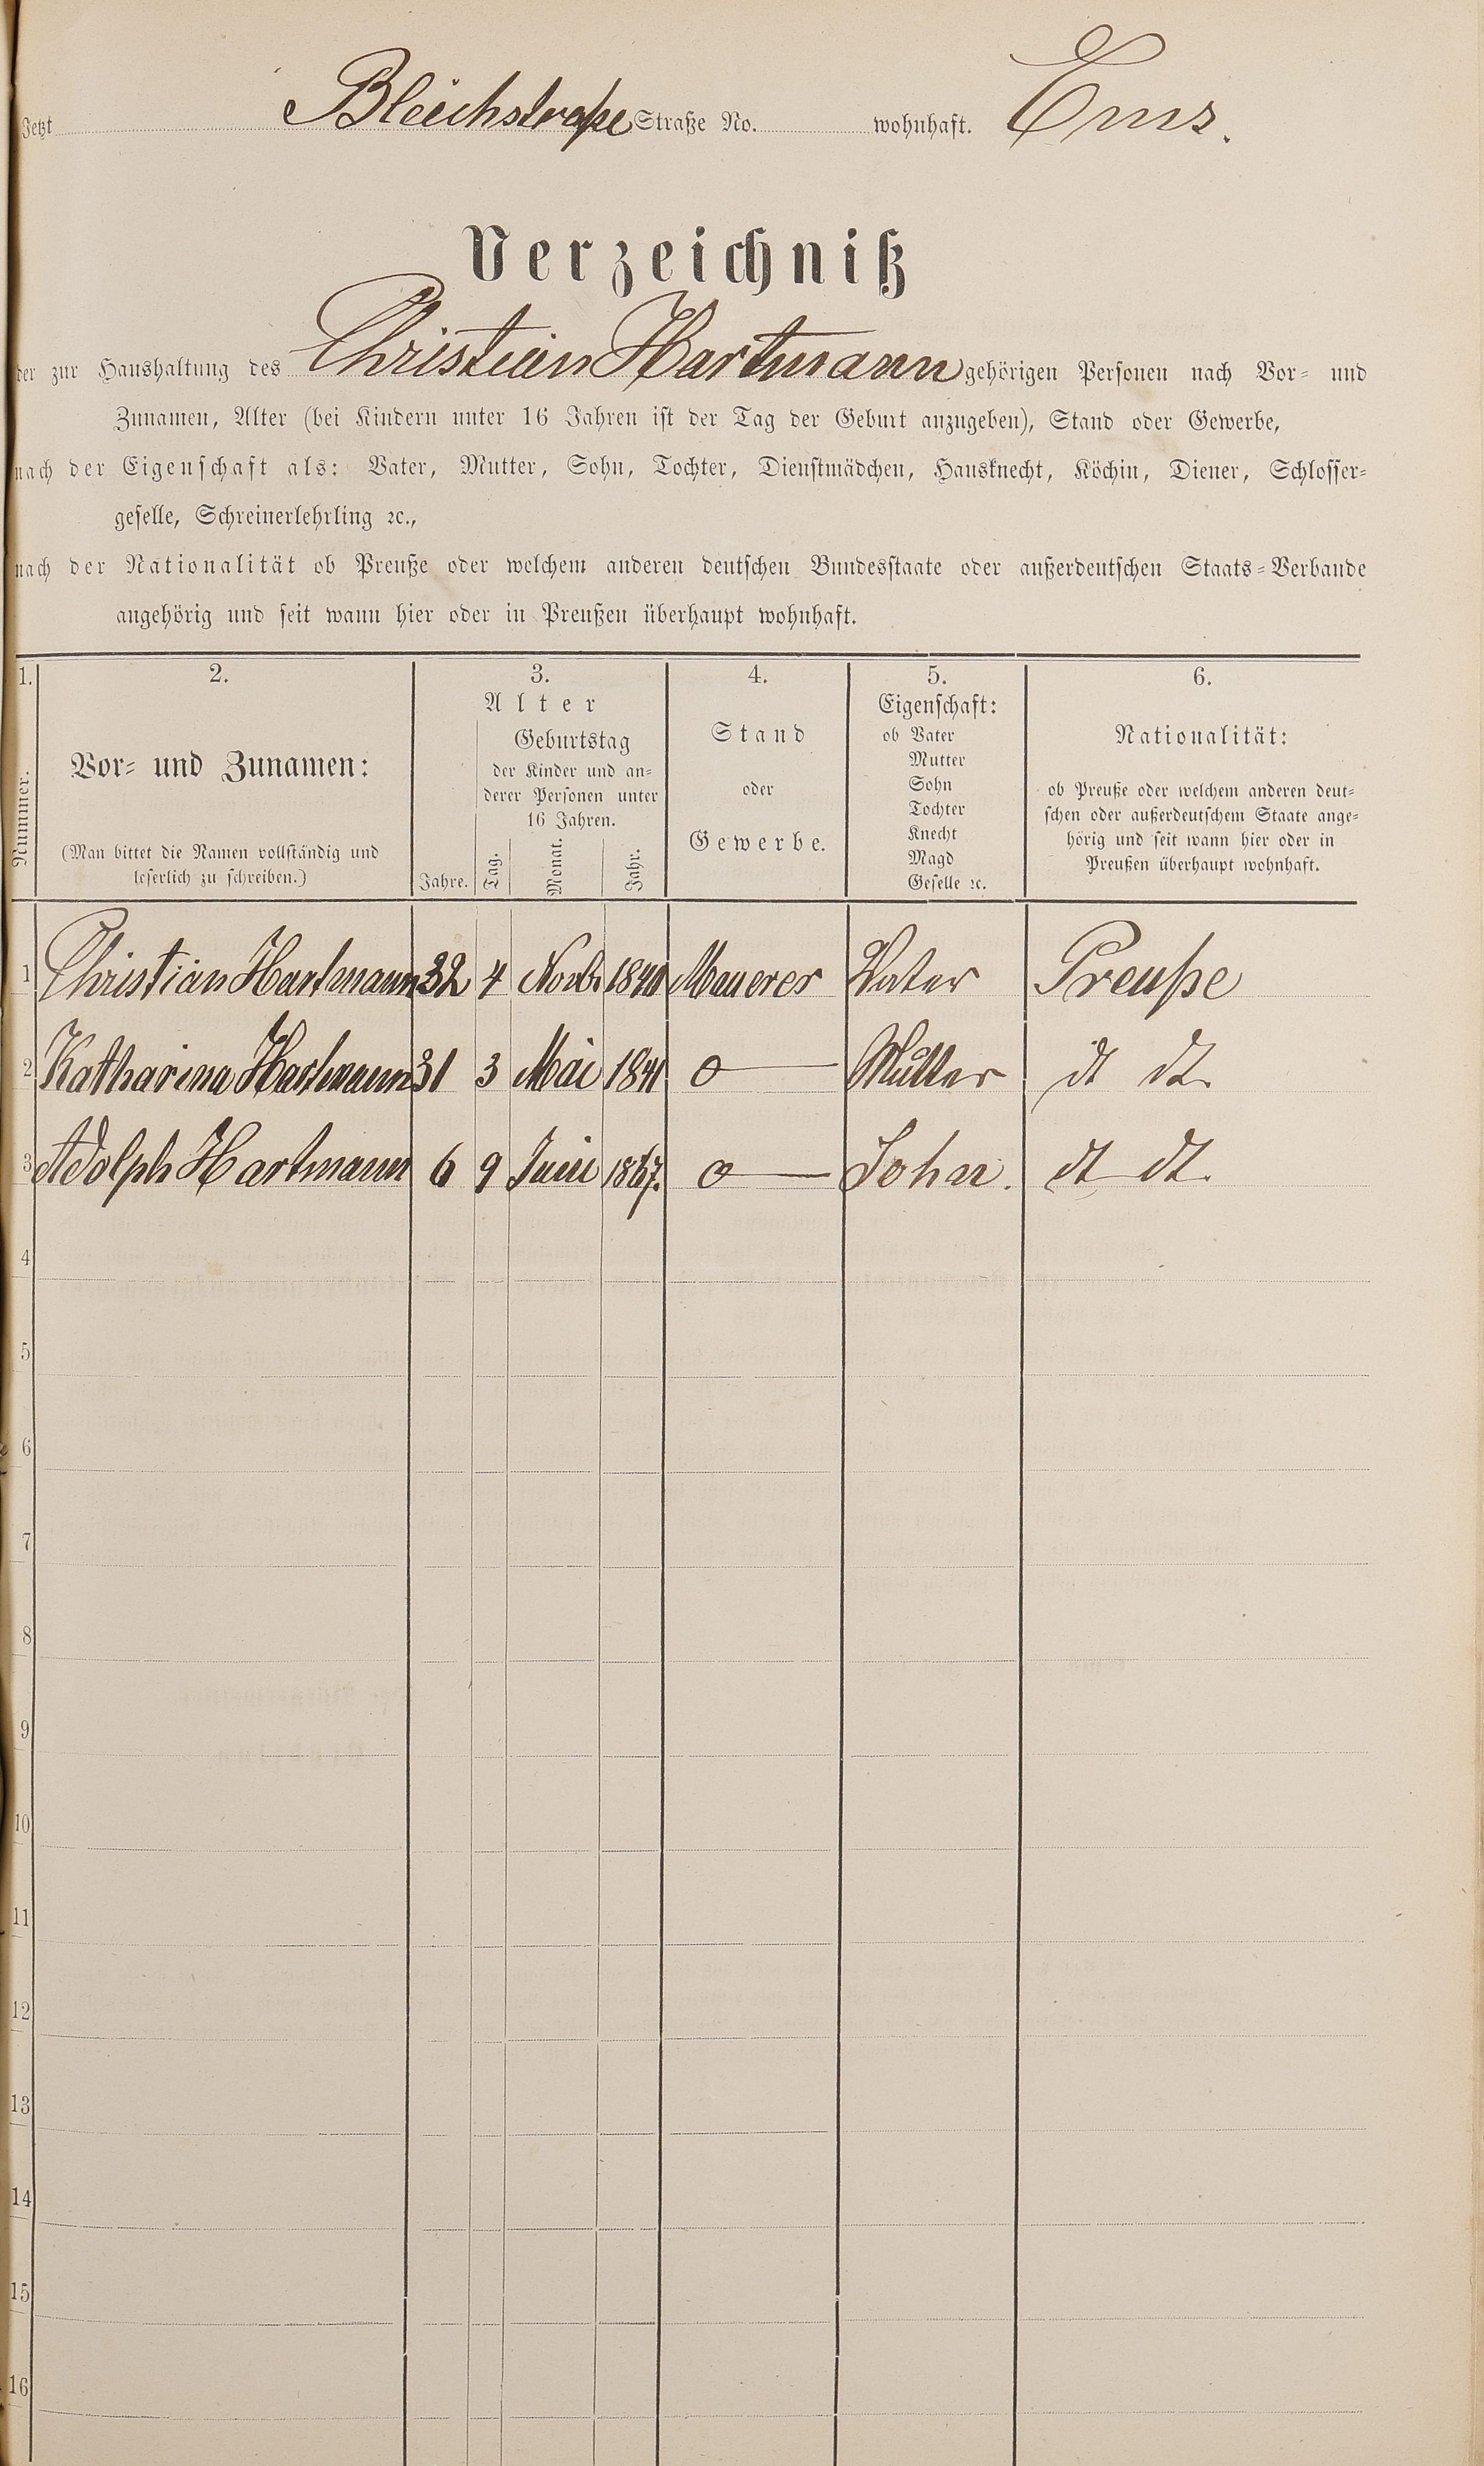 Jetzt Bleichstraße Straße No. wohnhaft. Ems.
Verzeichniß
der zur Haushaltung des Christian Hartmann gehörigen Personen nach Vor- und
Zunamen, Alter (bei Kindern unter 16 Jahren ist der Tag der Geburt anzugeben), Stand oder Gewerbe,
nach der Eigenschaft als: Vater, Mutter, Sohn, Tochter, Dienstmädchen, Hausknecht, Köchin, Diener, Schlosser-
geselle, Schreinerlehrling ꝛc.,
nach der Nationalität ob Preuße oder welchem anderen deutschen Bundesstaate oder außerdeutschen Staats-Verbande
angehörig und seit wann hier oder in Preußen überhaupt wohnhaft.
1. 2. 3. 4. 5. 6.
Nummer.
Vor- und Zunamen:
(Man bittet die Namen vollständig und
leserlich zu schreiben.)
Alter
Geburtstag
der Kinder und an-
derer Personen unter
16 Jahren.
Jahre. Tag. Monat. Jahr.
Stand
oder
Gewerbe.
Eigenschaft:
ob Vater
Mutter
Sohn
Tochter
Knecht
Magd
Geselle ꝛc.
Nationalität:
ob Preuße oder welchem anderen deut-
schen oder außerdeutschem Staate ange-
hörig und seit wann hier oder in
Preußen überhaupt wohnhaft.
1 Christian Hartmann 32 4 Novb. 1840 Mauerer Vater Preuße
2 Katharina Hartmann 31 3 Mai 1841 o— Mutter dt dt.
3 Adolph Hartmann 6 9 Juni 1867. o— Sohn. dt dt.
4
5
6
7
8
9
10
11
12
13
14
15
16